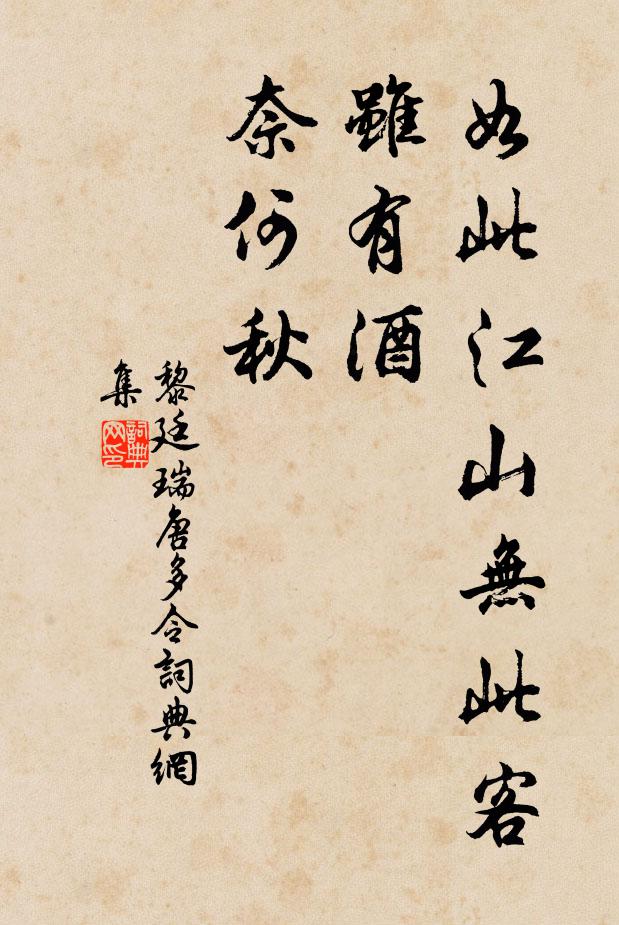 如此江山無此客
雖有酒
奈何秋
黎廷瑞唐多令詞典網
集
詞典
网印